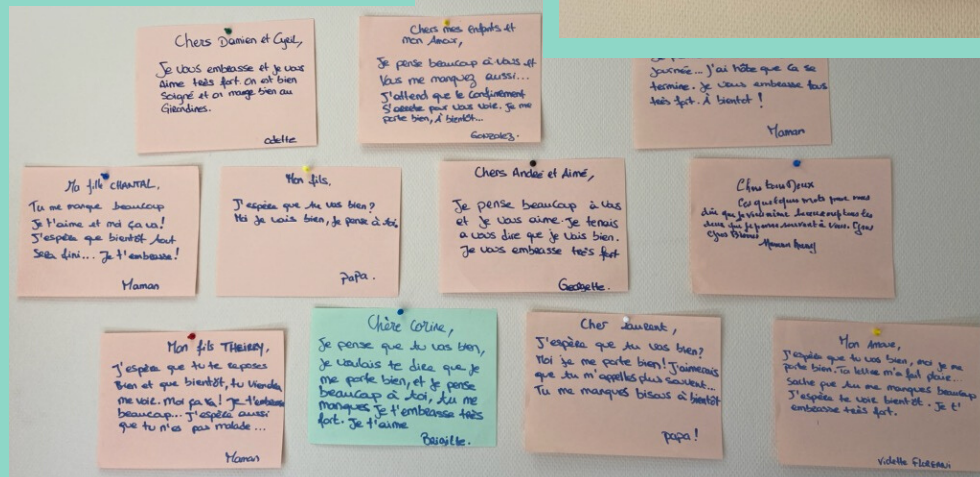 Chers Damien et Cyril,
Je vous embrasse et je vous
Aime très fort. on est bien
Soigné et on mange bien au
Girondines.
odette
Chers mes Enfants et
mon Amour,
Je pense beaucoup à vous et
Vous me manquez aussi...
J'attend que le confinement
S'arrete pour vous voir. Je me
porte bien, à bientôt...
Gonzalez.
journée... J'ai hâte que ça se
termine. Je vous embrasse tous
très fort. À bientot !
Maman
Ma fille CHANTAL,
Tu me manque beaucoup
Je t'aime et moi ça va!
J'espère que bientôt tout
Sera fini... Je t'embrasse!
Maman
Mon fils,
J'espère que tu vas bien?
Moi je vais bien, je pense à toi,
papa.
Chers André et Aimé,
Je pense beaucoup à vous
et je vous aime. Je tenais
a vous dire que je vais bien.
Je vous embrasse très fort
Georgette.
Chers tous Deux
Ces quelques mots pour vous
dire que je
Maman
Mon fils THEIRRY,
J'espère que tu te reposes
Bien et que bientôt, tu viendra
me voir. Moi ça va! Je t'embrasse
beaucoup... J'espère aussi
que tu n'es pas malade...
Maman
Chère Corine,
Je pense que tu vas bien,
je voulais te dire que je
me porte bien, et je pense
beaucoup à toi, tu me
manques je t'embrasse très
fort. Je t'aime
Brigitte.
Cher Laurent,
J'espère que tu vas bien?
Moi je me porte bien! J'aimerais
que tu m'appelles plus souvent...
Tu me manques bisous à bientôt
papa!
Mon Amour,
J'espère que tu vas bien, moi je me
porte bien. Ta lettre m'a fait plaisir...
Sache que tu me manques beaucoup
J'espère te voir bientôt. Je t'
embrasse très fort.
Violette